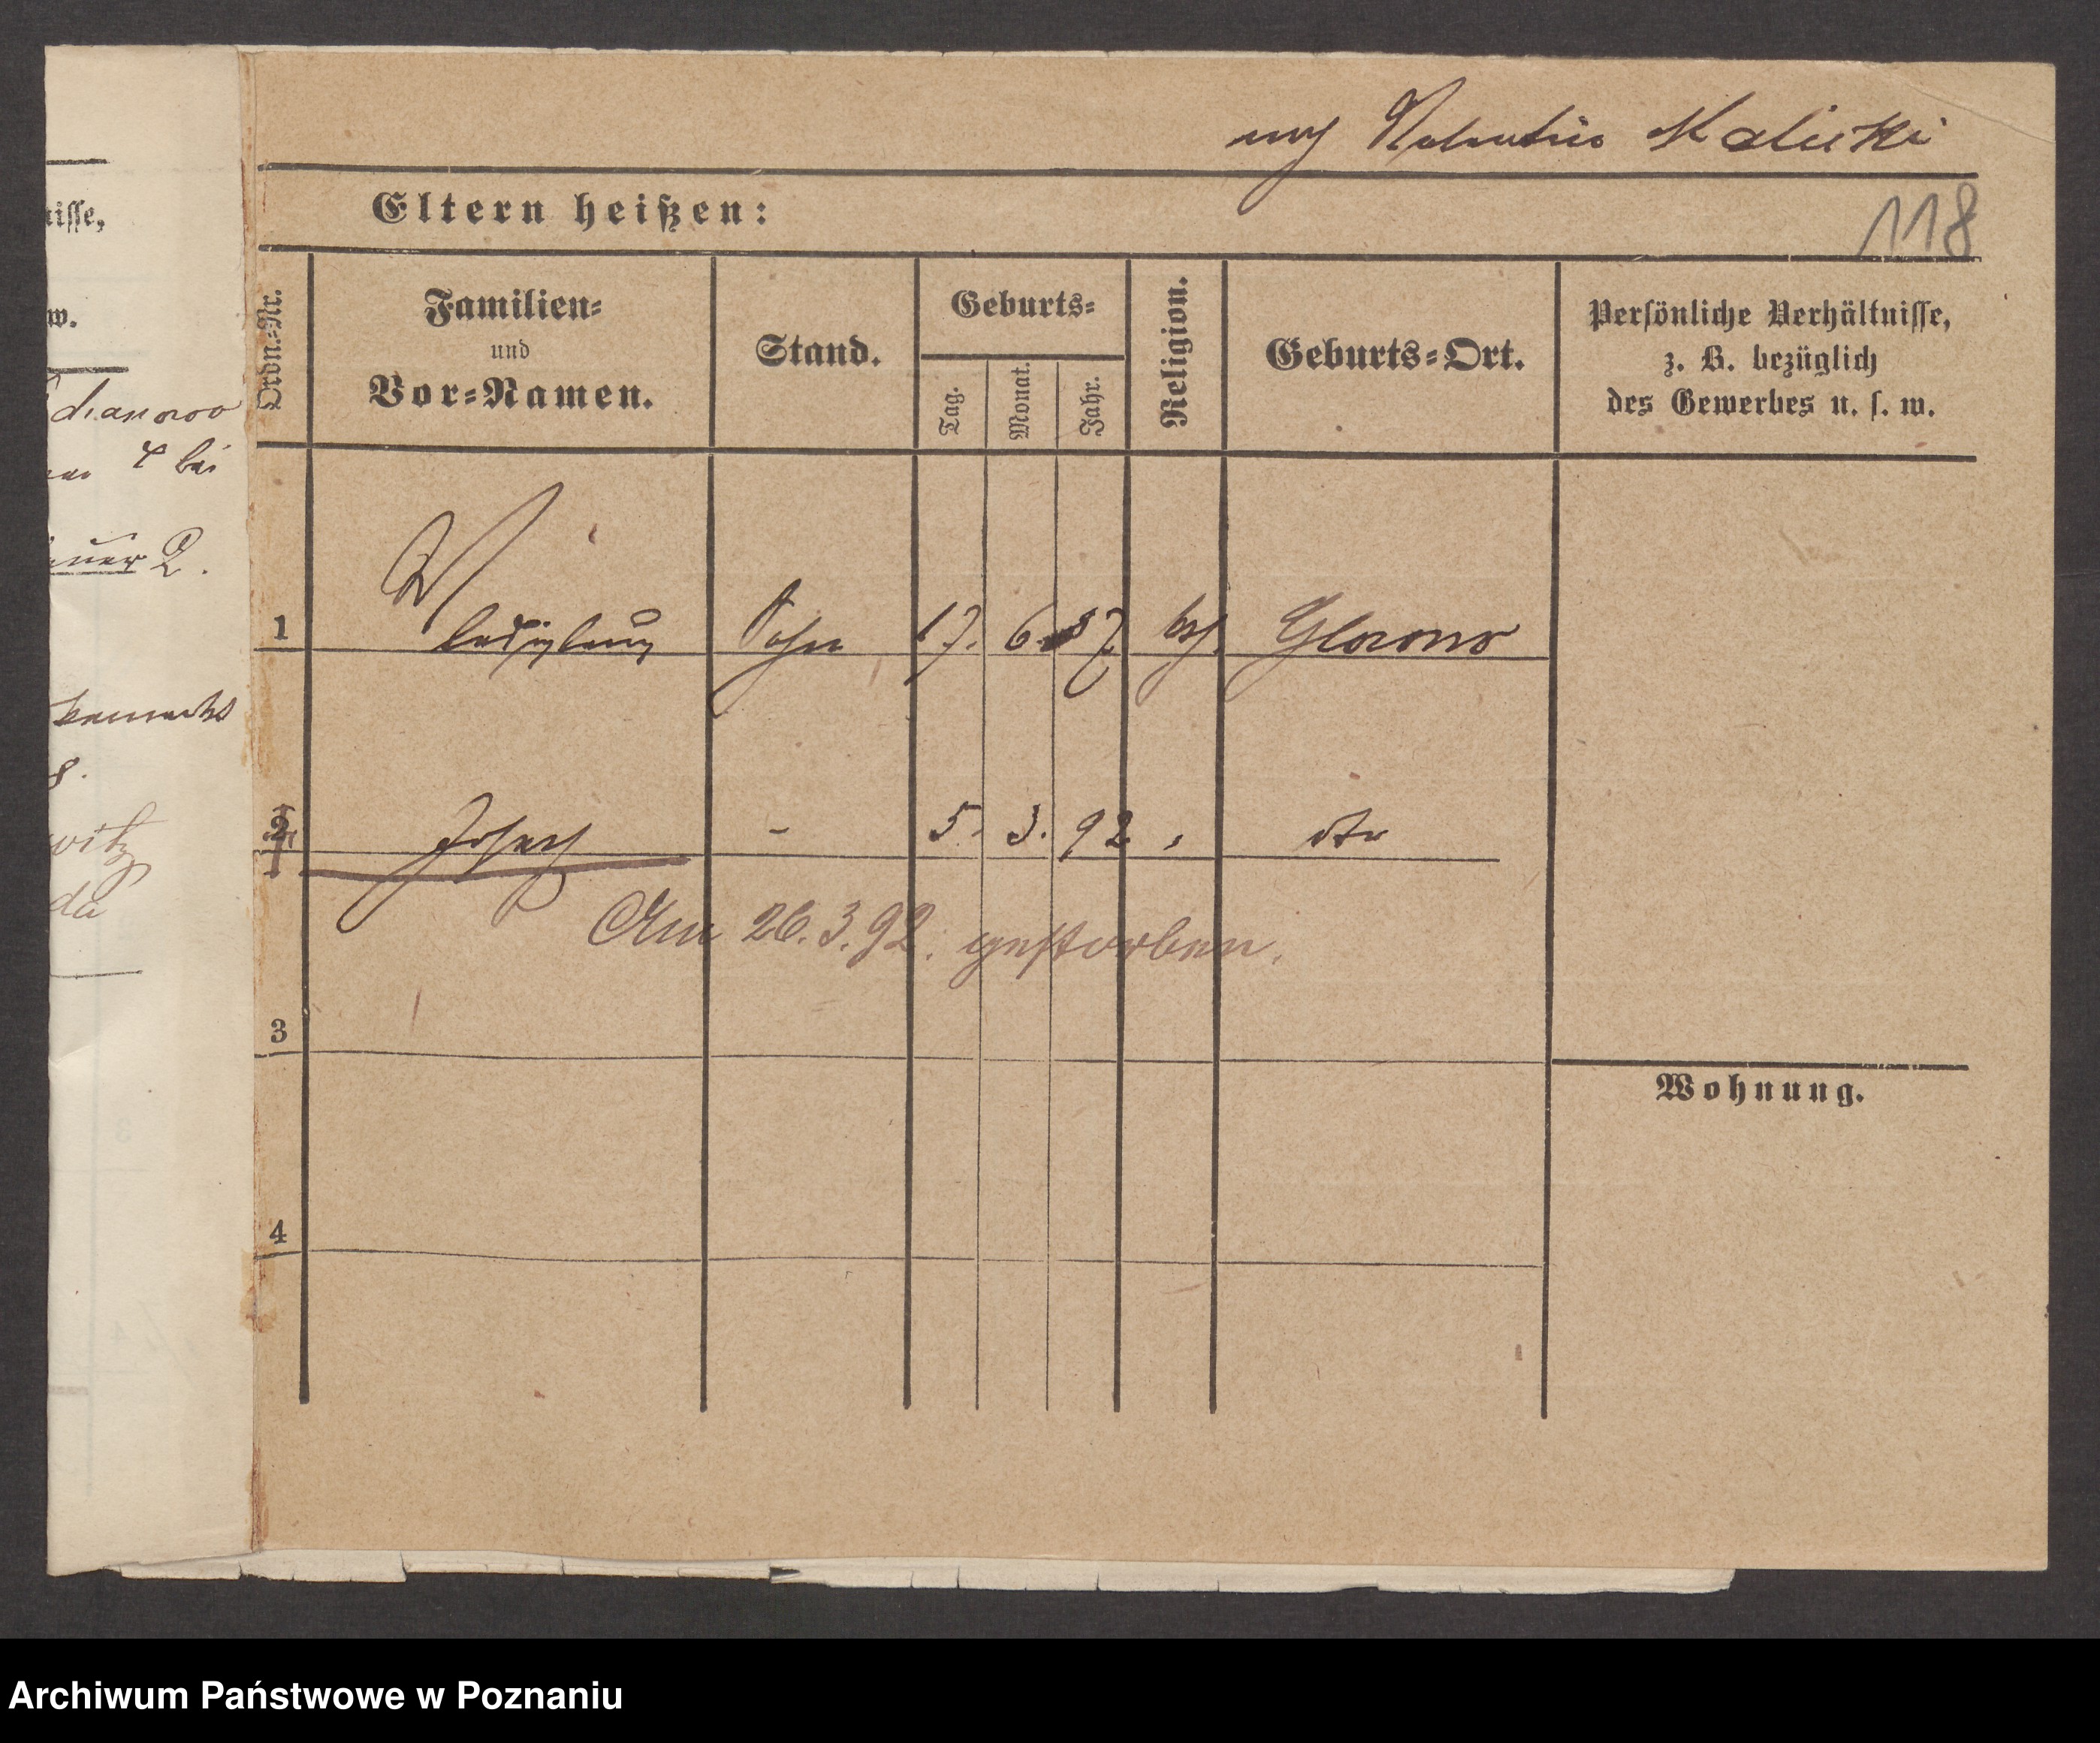 Valentin Kalicki
Eltern heißen:
118
isse,
w.
Ordn.=Nr.
Familien=
und
Vor=Namen.
Stand.
Geburts=
Tag.
Monat.
Jahr.
Religion.
Geburts=Ort.
Persönliche Verhältnisse,
z. B. bezüglich
des Gewerbes u. s. w.
bei
2.
1 Wladislaus Sohn 17. 6. 87. kth. Glowno
8.
witz
da
2 Josef - 5. 3. 92 " dto
Am 26.3.92. gestorben.
3
Wohnung.
4
Archiwum Państwowe w Poznaniu